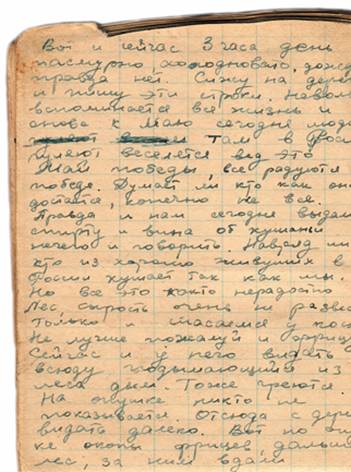 Вот и сейчас 3 часа день
пасмурно холодновато, дождя
правда нет. Сижу на дере
и пишу эти строки. Невол
вспоминается вся жизнь и
снова к Маю сегодня люди
там в Рос
гуляют веселятся вед это
Май победы, все радуются
победе. Думает ли кто как она
достается, конечно не все.
Правда и нам сегодня выдали
спирту и вина от кушаний
нечего и говорить. Навряд ли
кто из хорошо живущих в
России кушает так как мы.
Но все это както нерадостно
Лес, сырость очень не развес
только и спасаемся у кост
Не лучше пожалуй и фрицу
Сейчас и у него видать
всюду подымающийся из
леса дым. Тоже греются.
На опушке никто не
показывается. Отсюда с дере
видать далеко. Вот по оп
ке окопы фрицев дальше
лес, за ним вдали